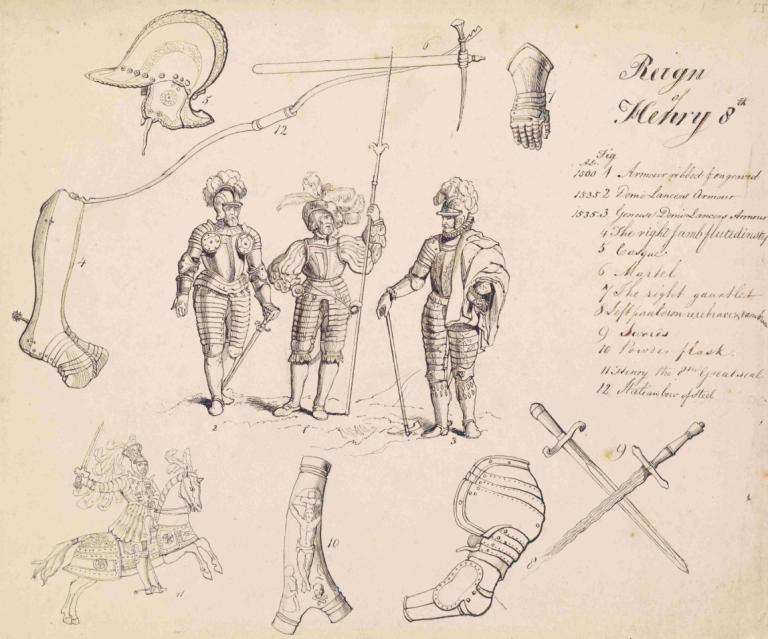 Reign
of
Henry 8th
Fig
AD.
1500 1 Armour ribbed & engraved
1535 2 Demi Lancers Armour
1535.3 Demi Lancers Armour
4 The right Jamb fluted
5 Casque
6 Martel
7 The right gauntlet
8 Left pauldron rerebrace &
9 Swords
10 Powder flask.
11 Henry the 8th Great seal
12 Italian bow of Steel
6
5
7
12
4
2
1
3
9
8
10
11